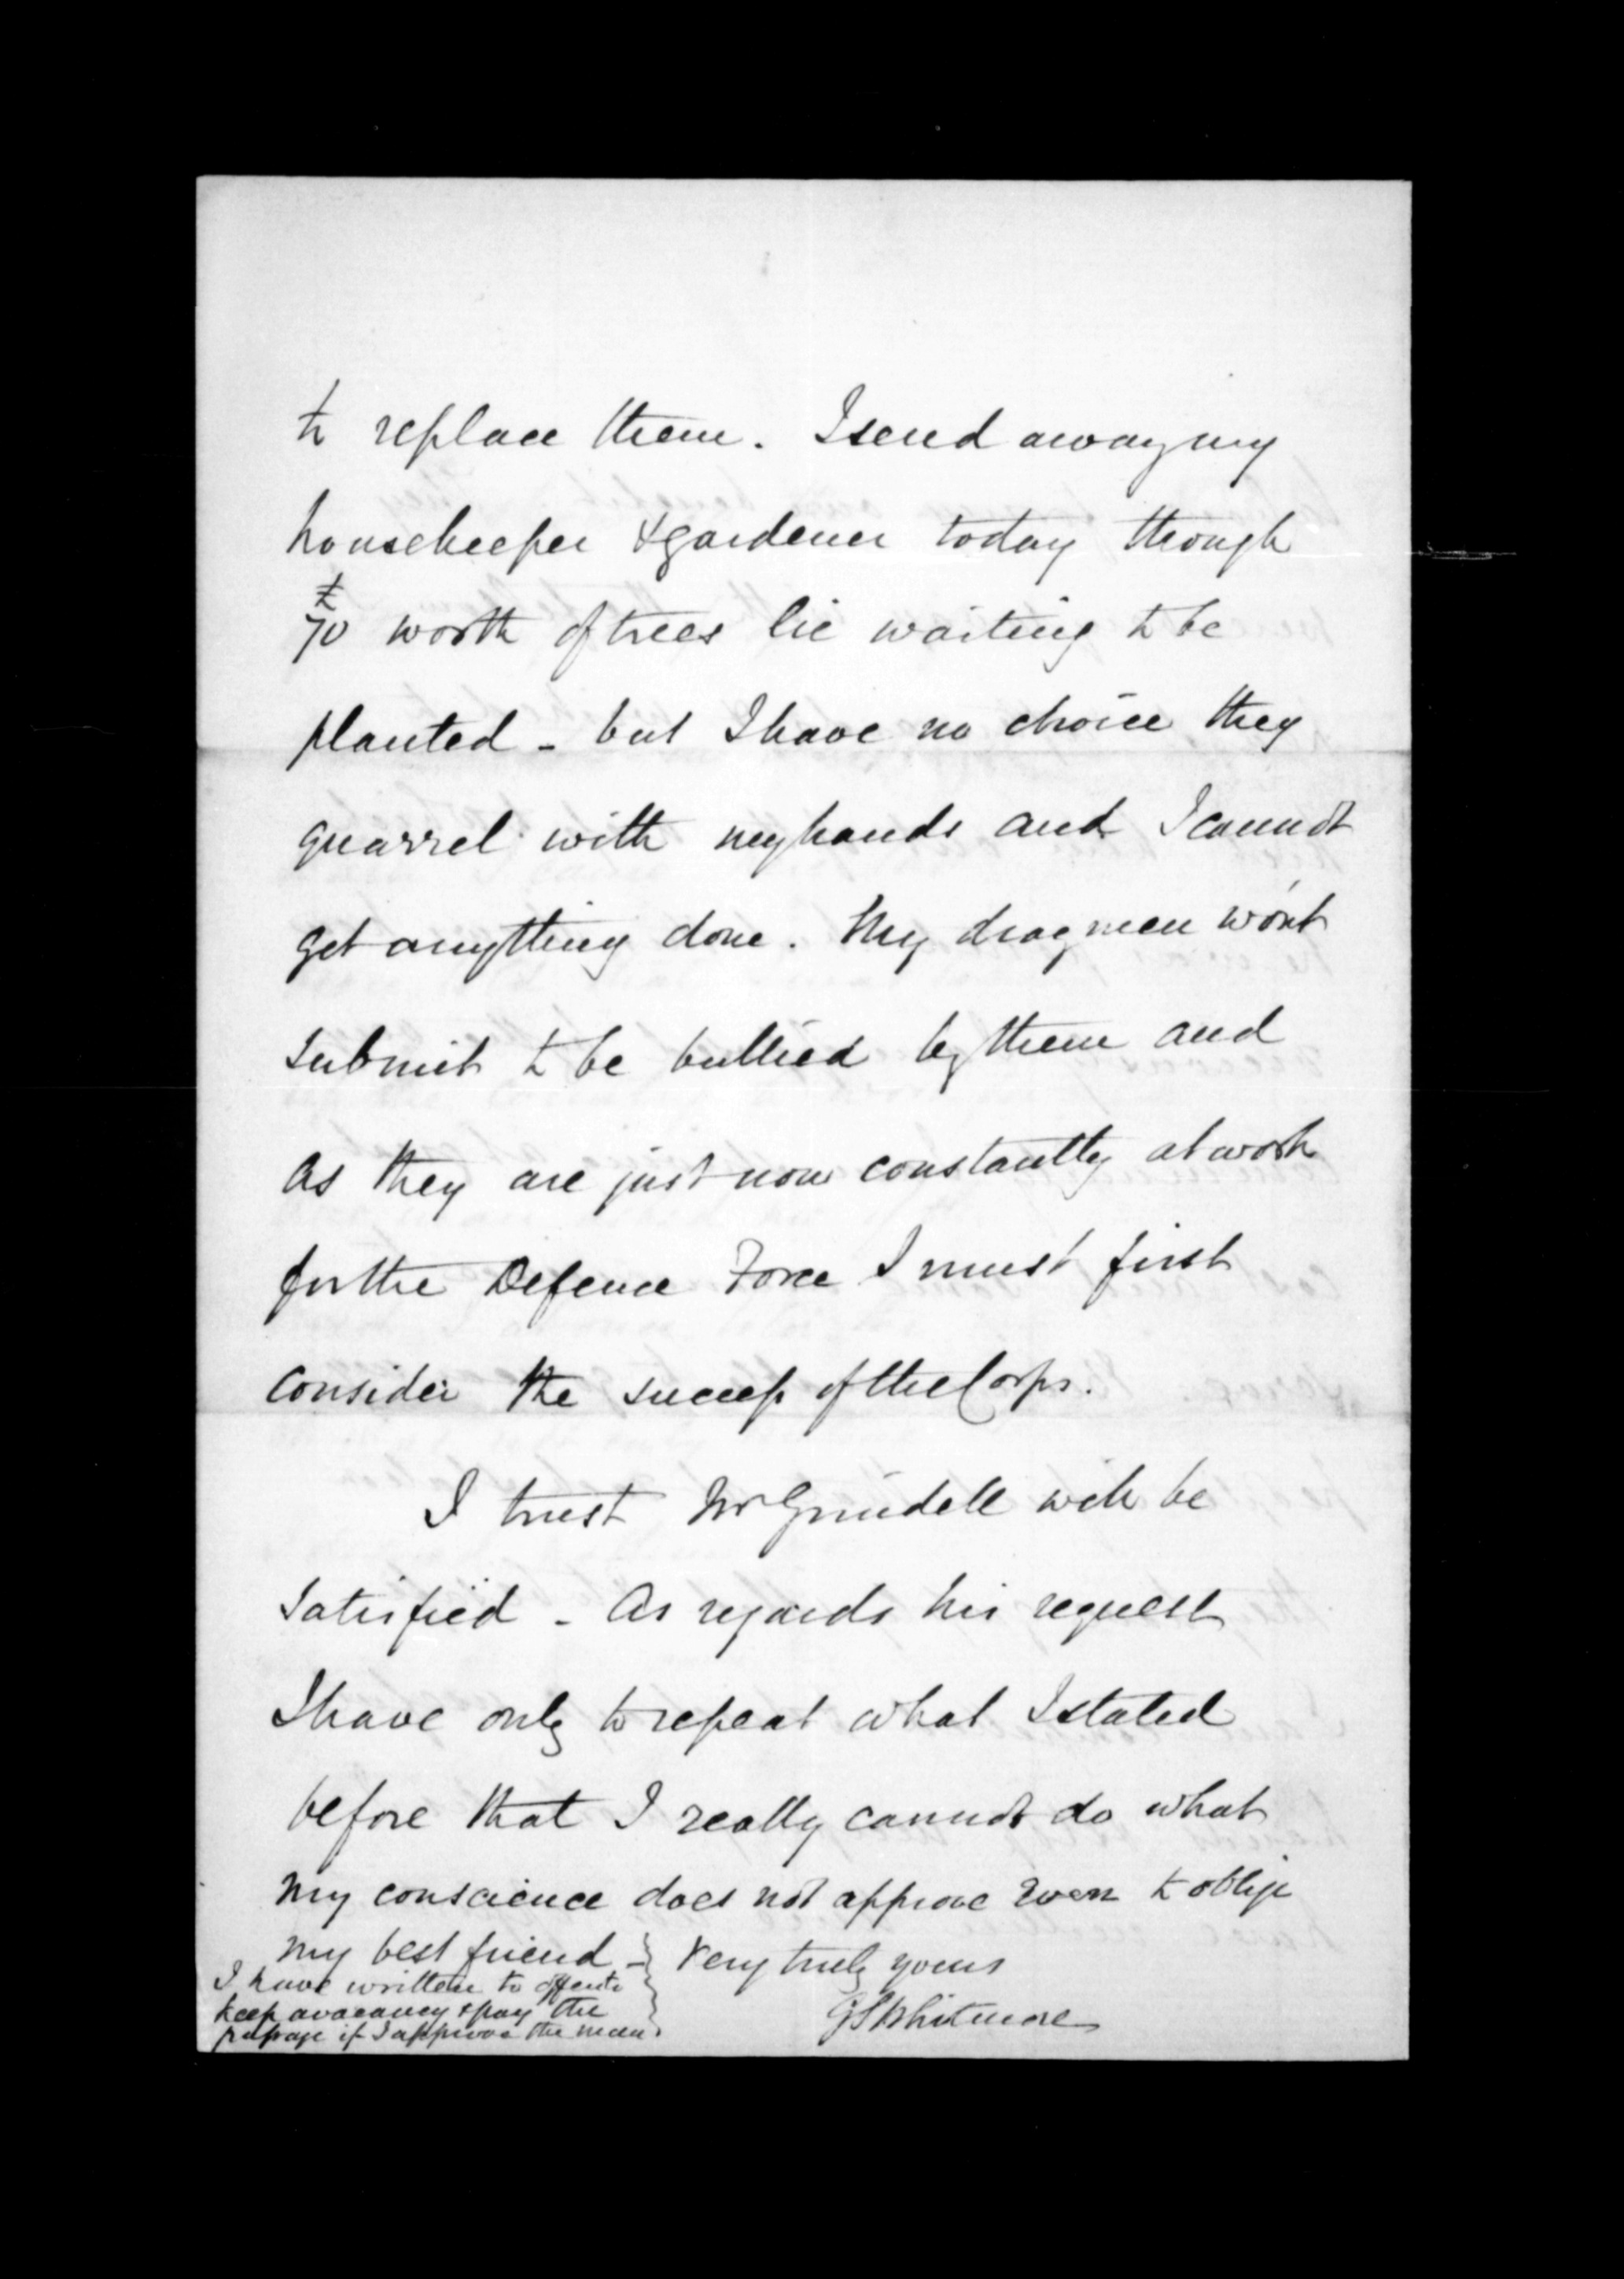 to replace them. I send away my
housekeeper & gardener today though
£
70 worth of trees lie waiting to be
planted - but I have no choice they
quarrel with my hands and I cannot
get anything done. My draymen won't
submit to be bullied by them and
as they are just now constantly at work
for the Defence Force I must first
consider the success of the Corps.
I trust Mr Grindell will be
satisfied - As regards his request
I have only to repeat what I stated
before that I really cannot do what
my conscience does not approve even to oblige
my best friend - Very truly yours
I have written to offer to
keep a vacancy & pay the
passage if I approve the man.
GS Whitmore